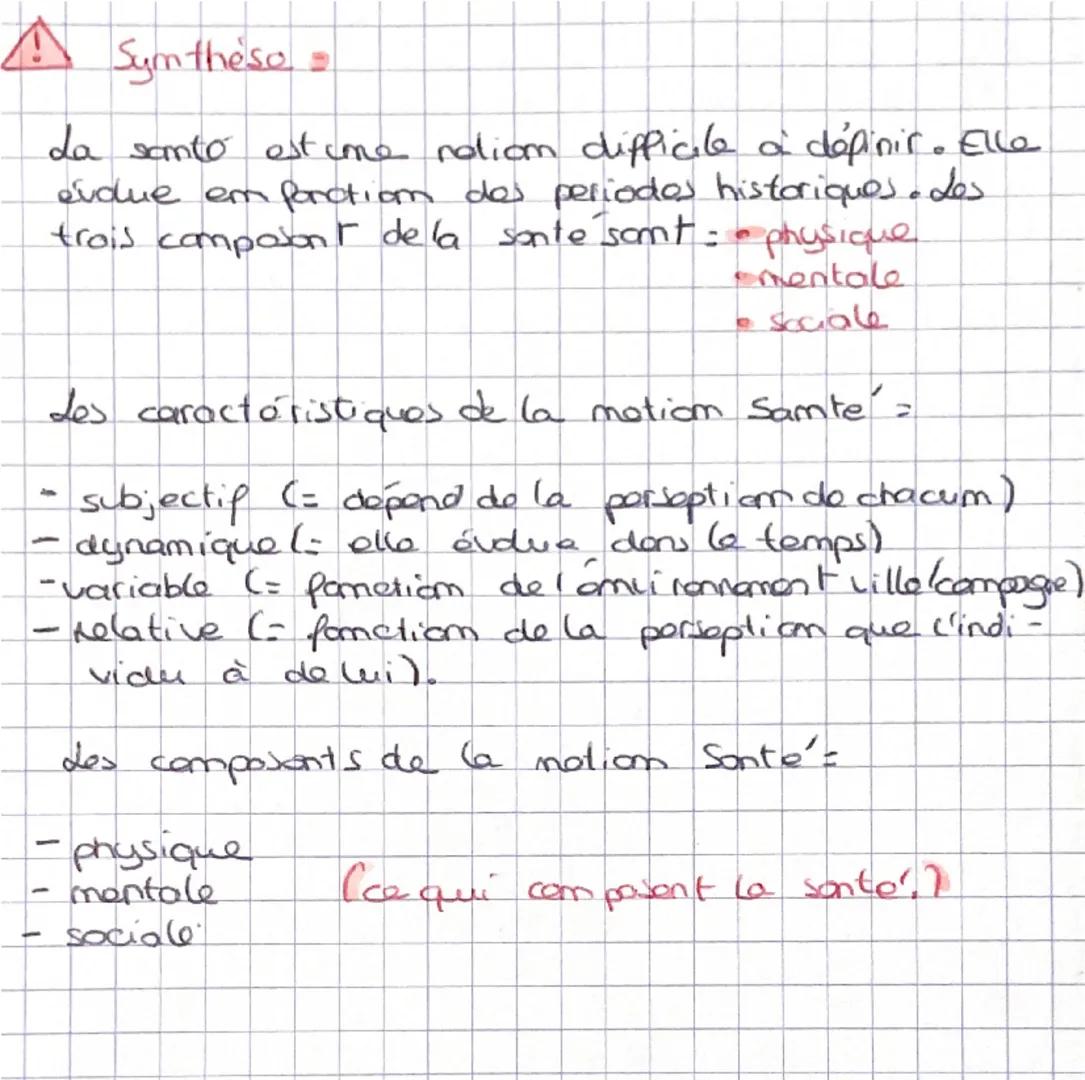 ! Synthèse :
La santé est une notion difficile à définir. Elle
évolue en fonction des periodes historiques. Les
trois composant de la santé sont : • physique
• mentale
• sociale
Les caractéristiques de la notion Santé :
- subjectif (= dépend de la perseption de chacun)
- dynamique (= elle évolue dans le temps)
- variable (= fonction de l'environnement ville/campagne)
- relative (= fonction de la perseption que l'indi-
vidu à de lui).
Les composants de la notion Santé :
- physique
- mentale (ce qui composent la santé.)
- sociale